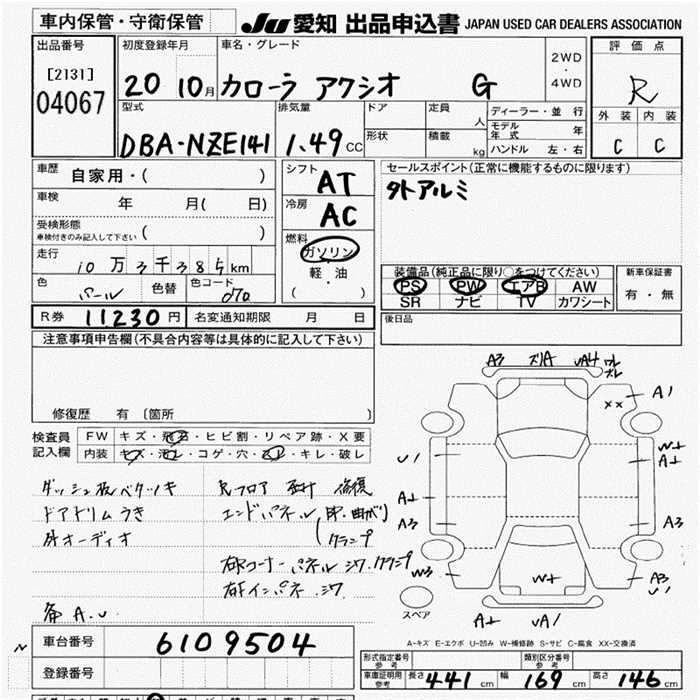 車内保管・守衛保管
JU 愛知 出品申込書 JAPAN USED CAR DEALERS ASSOCIATION
出品番号
[2131]
04067
初度登録年月
20 10月
車名・グレード
カローラ アクシオ G
2WD
・
4WD
評価点
R
外装 内装
C C
型式
DBA-NZE141
排気量
1.49 CC
ドア
形状
定員
人
積載
kg
ディーラー・並行
モデル年式 年
ハンドル 左・右
車歴 自家用・( )
車検 年 月( 日)
受検形態
車検付きのみ記入して下さい ( )
走行
10万3千385km
色 パール 色替 色コード 070
シフト AT
冷房 AC
燃料
ガソリン
軽・油
( )
セールスポイント(正常に機能するものに限ります)
外アルミ
装備品(純正品に限り○をつけてください)
PS PW エアB AW
SR ナビ TV カワシート
新車保証書
有・無
R券 11230円 名変通知期限 月 日
後日品
注意事項申告欄(不具合内容等は具体的に記入して下さい)
修復歴 有 〔箇所 〕
検査員記入欄
FW キズ・飛石・ヒビ割・リペア跡・X要
内装 キズ・汚レ・コゲ・穴・スレ・キレ・破レ
ダッシュ板ベタツキ
ドアトリムうき
外オーディオ
Rフロア 修復
エンドパネル(曲がり
クランプ
右Rコーナーパネル シワ クランプ
右Rインパネ シワ
A.U
A3 ズリA UA4
A1
XX
U1
A+
A3
W3
W+
A+
A3
A3
U1
W+
A+ UA1
スペア
A-キズ E-エクボ U-凹み W-補修跡 S-サビ C-腐食 XX-交換済
車台番号 6109504
登録番号
形式指定番号
参考
類別区分番号
参考
車庫証明用
参考
長さ 441cm 幅 169cm 高さ 146cm